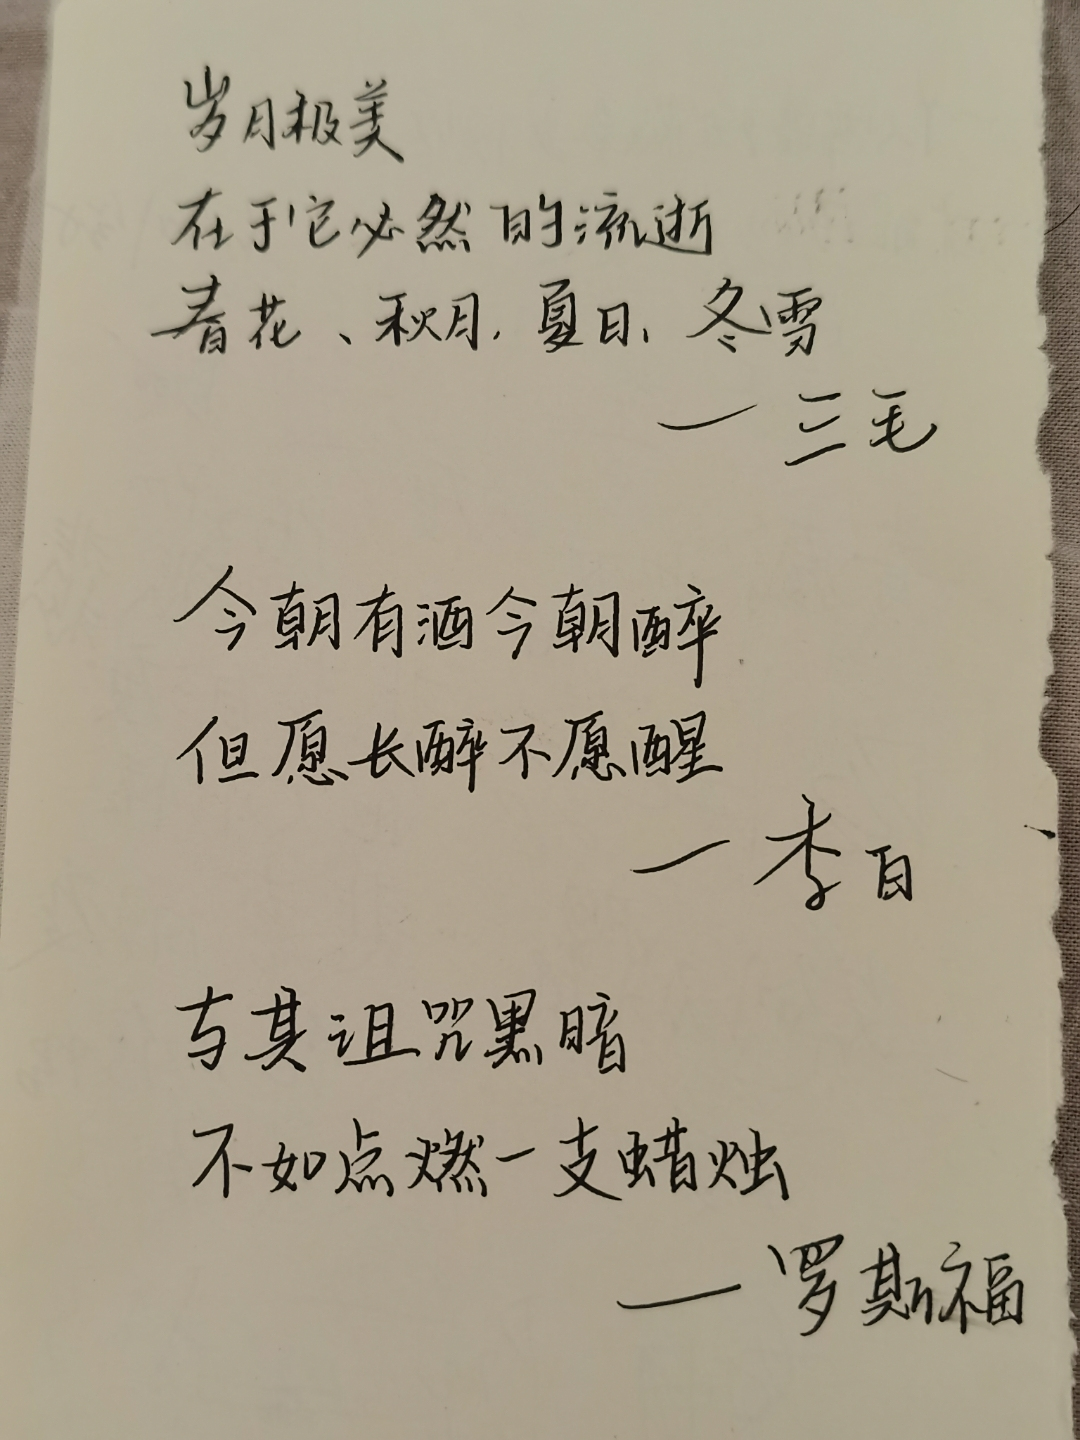 岁月极美
在于它必然的流逝
春花、秋月、夏日、冬雪
—三毛
今朝有酒今朝醉
但愿长醉不愿醒
—李白
与其诅咒黑暗
不如点燃一支蜡烛
—罗斯福